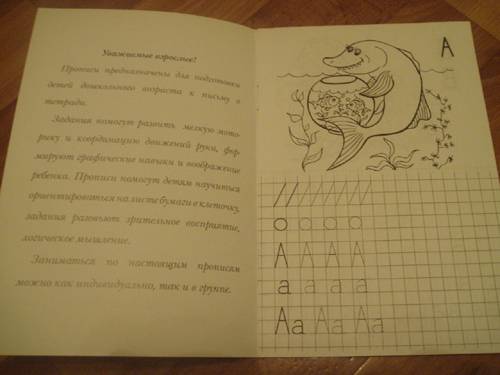 Уважаемые взрослые!
Прописи предназначены для подготовки
детей дошкольного возраста к письму в
тетради.
Задания помогут развить мелкую мото-
рику и координацию движений руки, фор
мируют графические навыки и воображение
ребенка. Прописи помогут детям научиться
ориентироваться на листе бумаги в клеточку,
задания разовьют зрительное восприятие,
логическое мышление.
Заниматься по настоящим прописям
можно как индивидуально, так и в группе.
А
А А А А
а а а а
Аа Аа Аа